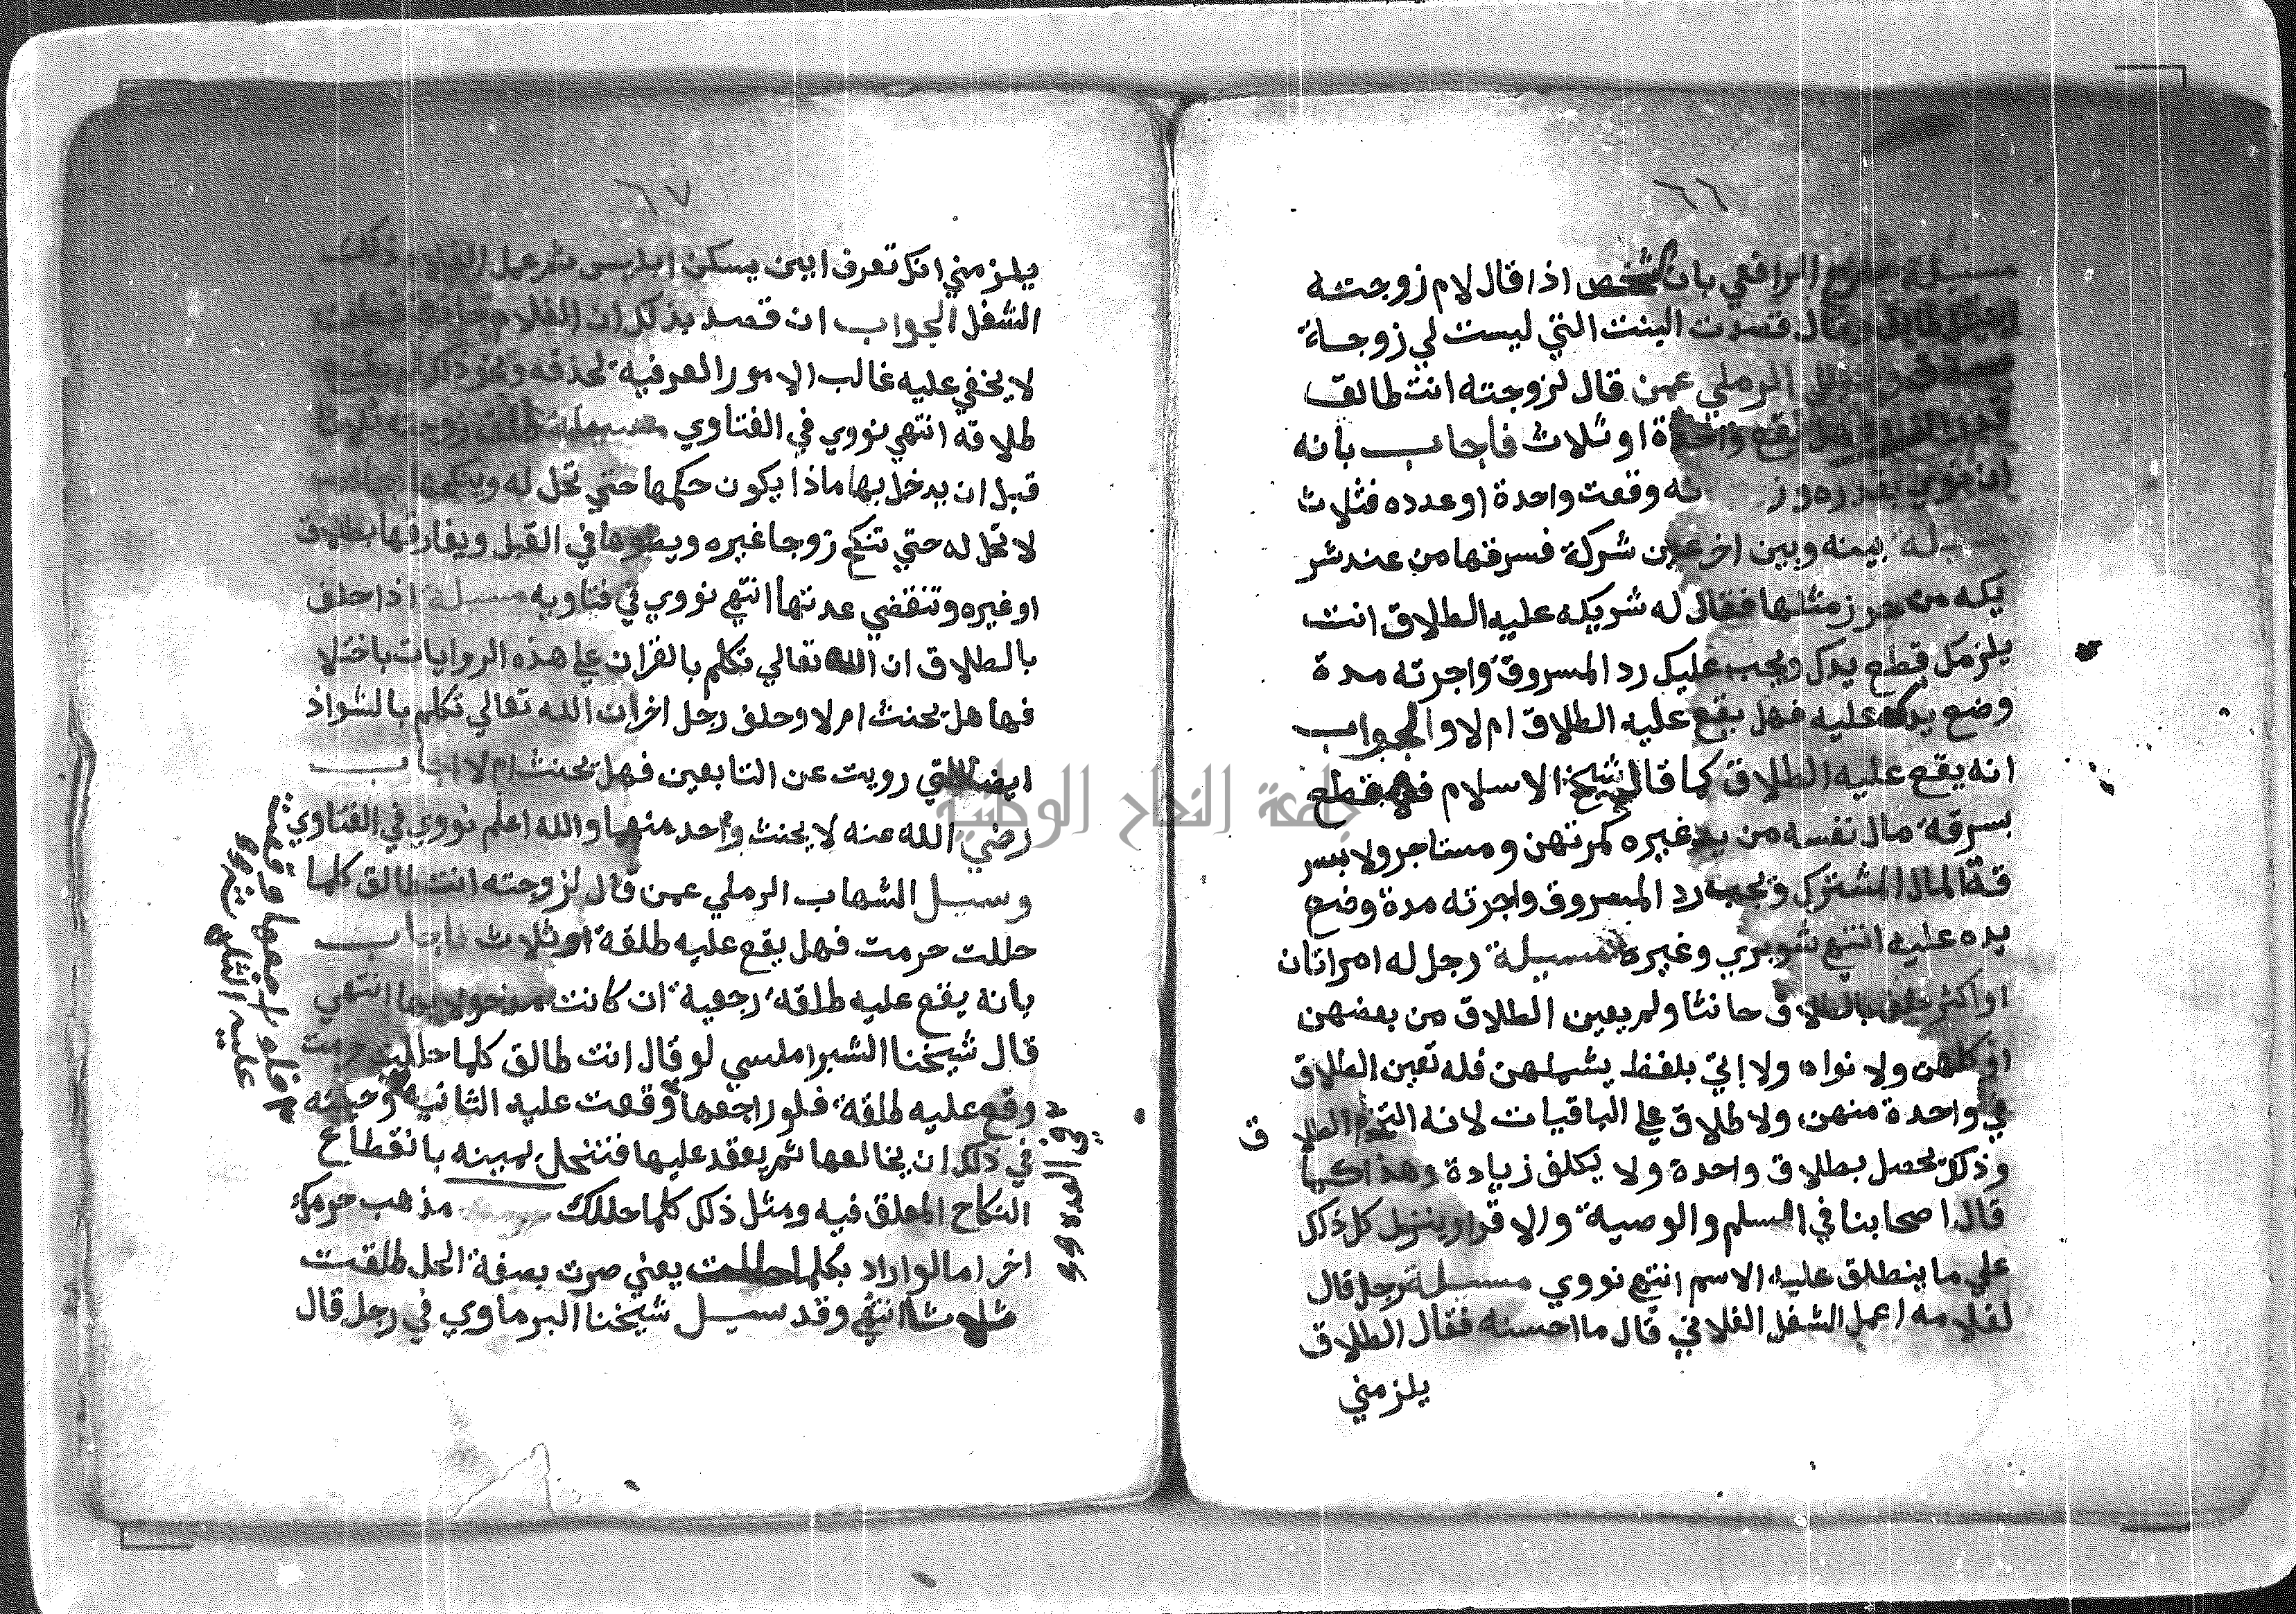 ٦٦
مسيلة صرح الرافعي بان شخص اذا قال لام زوجته
ابنتك طالق وقال قصدت البنت التي ليست لي زوجاة
صدق وسيل الرملي عمن قال لزوجته انت طالق
فهل تقع واحدة او ثلاث فاجاب بانه
ان نوي بقدره وز نه وقعت واحدة او عدده فثلاث
بينه وبين اخر عين شركة فسرقها من عند شر
يكه من حرز مثلها فقال له شريكه عليه الطلاق انت
يلزمك قطع يدك ويجب عليك رد المسروق واجرته مدة
وضع يدك عليه فهل يقع عليه الطلاق ام لا والجواب
انه يقع عليه الطلاق كما قال شيخ الاسلام فلا يقطع
بسرقة مال نفسه من يد غيره كمرتهن ومستاجر ولا بسر
قة المال المشترك ويجب رد المسروق واجرته مدة وضع
يده عليه انتهي شوبري وغيره مسيلة رجل له امراتان
او اكثر حلف بالطلاق حانثا ولم يعين الطلاق من بعضهن
او كلهن ولا نواه ولا اتي بلفظ يشملهن فله تعين الطلاق
في واحدة منهن ولا طلاق علي الباقيات لانه التزم الطلا
ق
وذلك يحصل بطلاق واحدة ولا يكلف زيادة وهذا كما
قال اصحابنا في السلم والوصية والاقرار ينزل كل ذلك
علي ما ينطلق عليه الاسم انتهي نووي مسيلة رجل قال
لغلامه اعمل الشغل الفلاني قال ما احسنه فقال الطلاق
يلزمني
٦٧
يلزمني انك تعرف اين يسكن ابليس ثم عمل الغلام ذلك
الشغل الجواب ان قصد بذلك ان الغلام حاذق فطن
لا يخفي عليه غالب الامور العرفية لحذقه ونحو ذلك لم يقع
طلاقه انتهي نووي في الفتاوي مسيلة طلق زوجته ثلاثا
قبل ان يدخل بها ماذا يكون حكمها حتي تحل له وينكحها
لا تحل له حتي تنكح زوجا غيره ويطوها في القبل ويفارقها بطلاق
او غيره وتنقضي عدتها انتهي نووي في فتاويه مسيلة اذا حلف
بالطلاق ان الله تعالي تكلم بالقران علي هذه الروايات باختلا
فها هل يحنث ام لا وحلف رجل اخر ان الله تعالي تكلم بالشواذ
ايضا التي رويت عن التابعين فهل يحنث ام لا اجاب
رضي الله عنه لا يحنث واحد منهما والله اعلم نووي في الفتاوي
وسيل الشهاب الرملي عمن قال لزوجته انت طالق كلما
حللت حرمت فهل يقع عليه طلقة او ثلاث فاجاب
بانه يقع عليه طلقة رجعية ان كانت مدخولا بها انتهي
قال شيخنا الشبراملسي لو قال انت طالق كلما حللت حرمت
وقع عليه طلقة فلو راجعها وقعت عليه الثانية وحيلته
في ذلك ان يخالعها ثم يعقد عليها فتنحل يمينه بانقطاع
النكاح المعلق فيه ومثل ذلك كلما حللك مذهب حرمك
اخر اما لو اراد بكلما حللت يعني صرت بصفة الحل طلقت
ثلاثا انتهي وقد سيل شيخنا البرماوي في رجل قال
فلو راجعها وقعت
عليه الثالثة
جامعة النجاح الوطنية